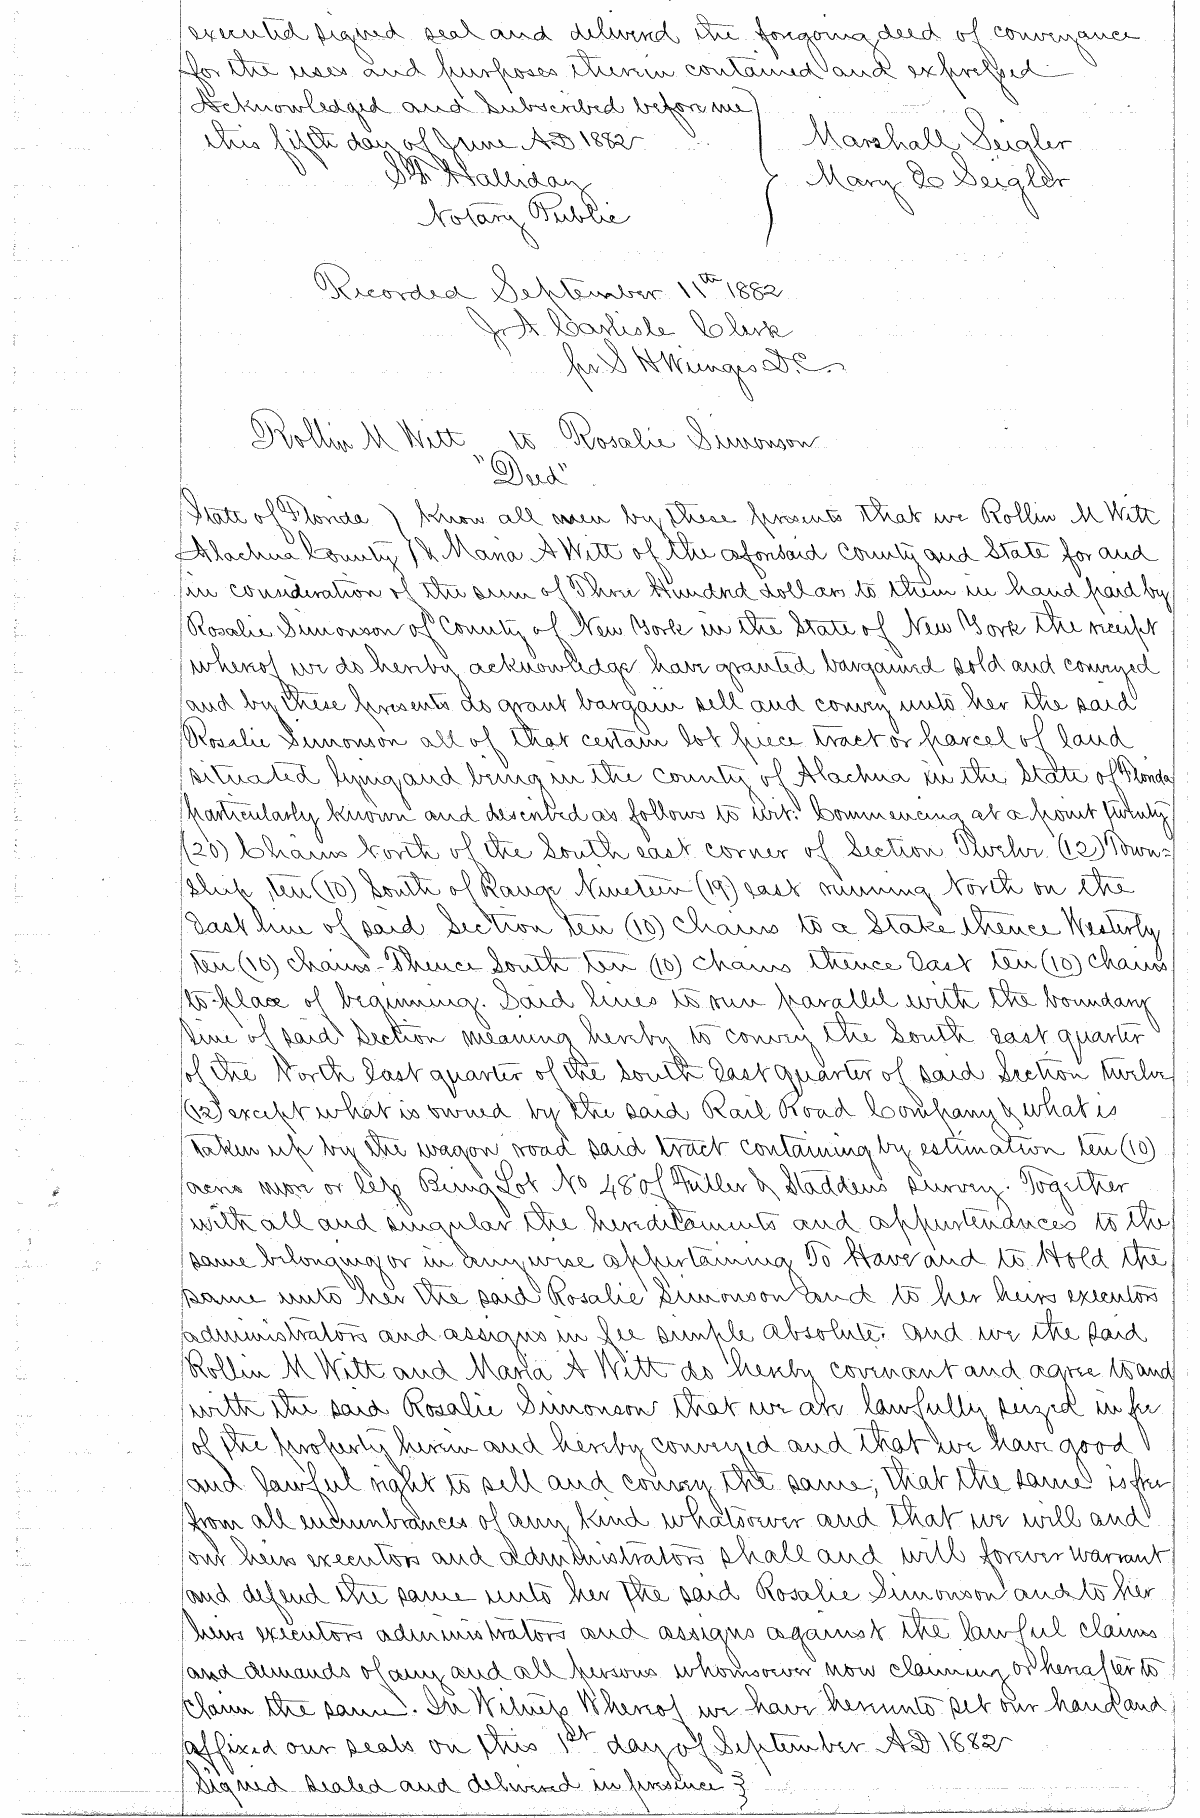 executed signed seal and delivered the foregoing deed of conveyance
for the uses and purposes therein contained and expressed
Acknowledged and Subscribed before me )
this fifth day of June AD 1882
Marshall Seigler
Halliday
Mary E Seigler
Notary Public
Recorded September 11th 1882
J A Carlisle Clerk
per S H Wienges D.C.
Rollin M Witt to Rosalie Simonson
"Deed"
State of Florida ) Know all men by these presents that we Rollin M Witt
Alachua County ) & Maria A Witt of the aforesaid County and State for and
in consideration of the sum of Three Hundred dollars to them in hand paid by
Rosalie Simonson of County of New York in the State of New York the receipt
whereof we do hereby acknowledge have granted bargained sold and conveyed
and by these presents do grant bargain sell and convey unto her the said
Rosalie Simonson all of that certain lot piece tract or parcel of land
situated lying and being in the county of Alachua in the State of Florida
particularly known and described as follows to wit: Commencing at a point twenty
(20) Chains North of the South east corner of Section Twelve (12) Town=
ship ten (10) South of Range Nineteen (19) east running North on the
East line of said Section ten (10) Chains to a Stake thence Westerly
ten (10) chains - Thence South ten (10) chains thence East ten (10) chains
to place of beginning. Said lines to run parallel with the boundary
line of said Section meaning hereby to convey the South east quarter
of the North East quarter of the South East quarter of said Section twelve
(12) except what is owned by the said Rail Road Company & what is
taken up by the wagon road said tract containing by estimation ten (10)
acres more or less Being Lot No 48 of Fuller & Staddens survey. Together
with all and singular the hereditaments and appurtenances to the
same belonging or in anywise appertaining To Have and to Hold the
same unto her the said Rosalie Simonson and to her heirs executors
administrators and assigns in fee simple absolute. and we the said
Rollin M Witt and Maria A Witt do hereby covenant and agree to and
with the said Rosalie Simonson that we are lawfully seized in fee
of the property herein and hereby conveyed and that we have good
and lawful right to sell and convey the same; that the same is free
from all encumbrances of any kind whatsoever and that we will and
our heirs executors and administrators shall and will forever warrant
and defend the same unto her the said Rosalie Simonson and to her
heirs executors administrators and assigns against the lawful claims
and demands of any and all persons whomsoever now claiming or hereafter to
claim the same. In Witness Whereof we have hereunto set our hand and
affixed our seals on this 1st day of September AD 1882
Signed sealed and delivered in presence }